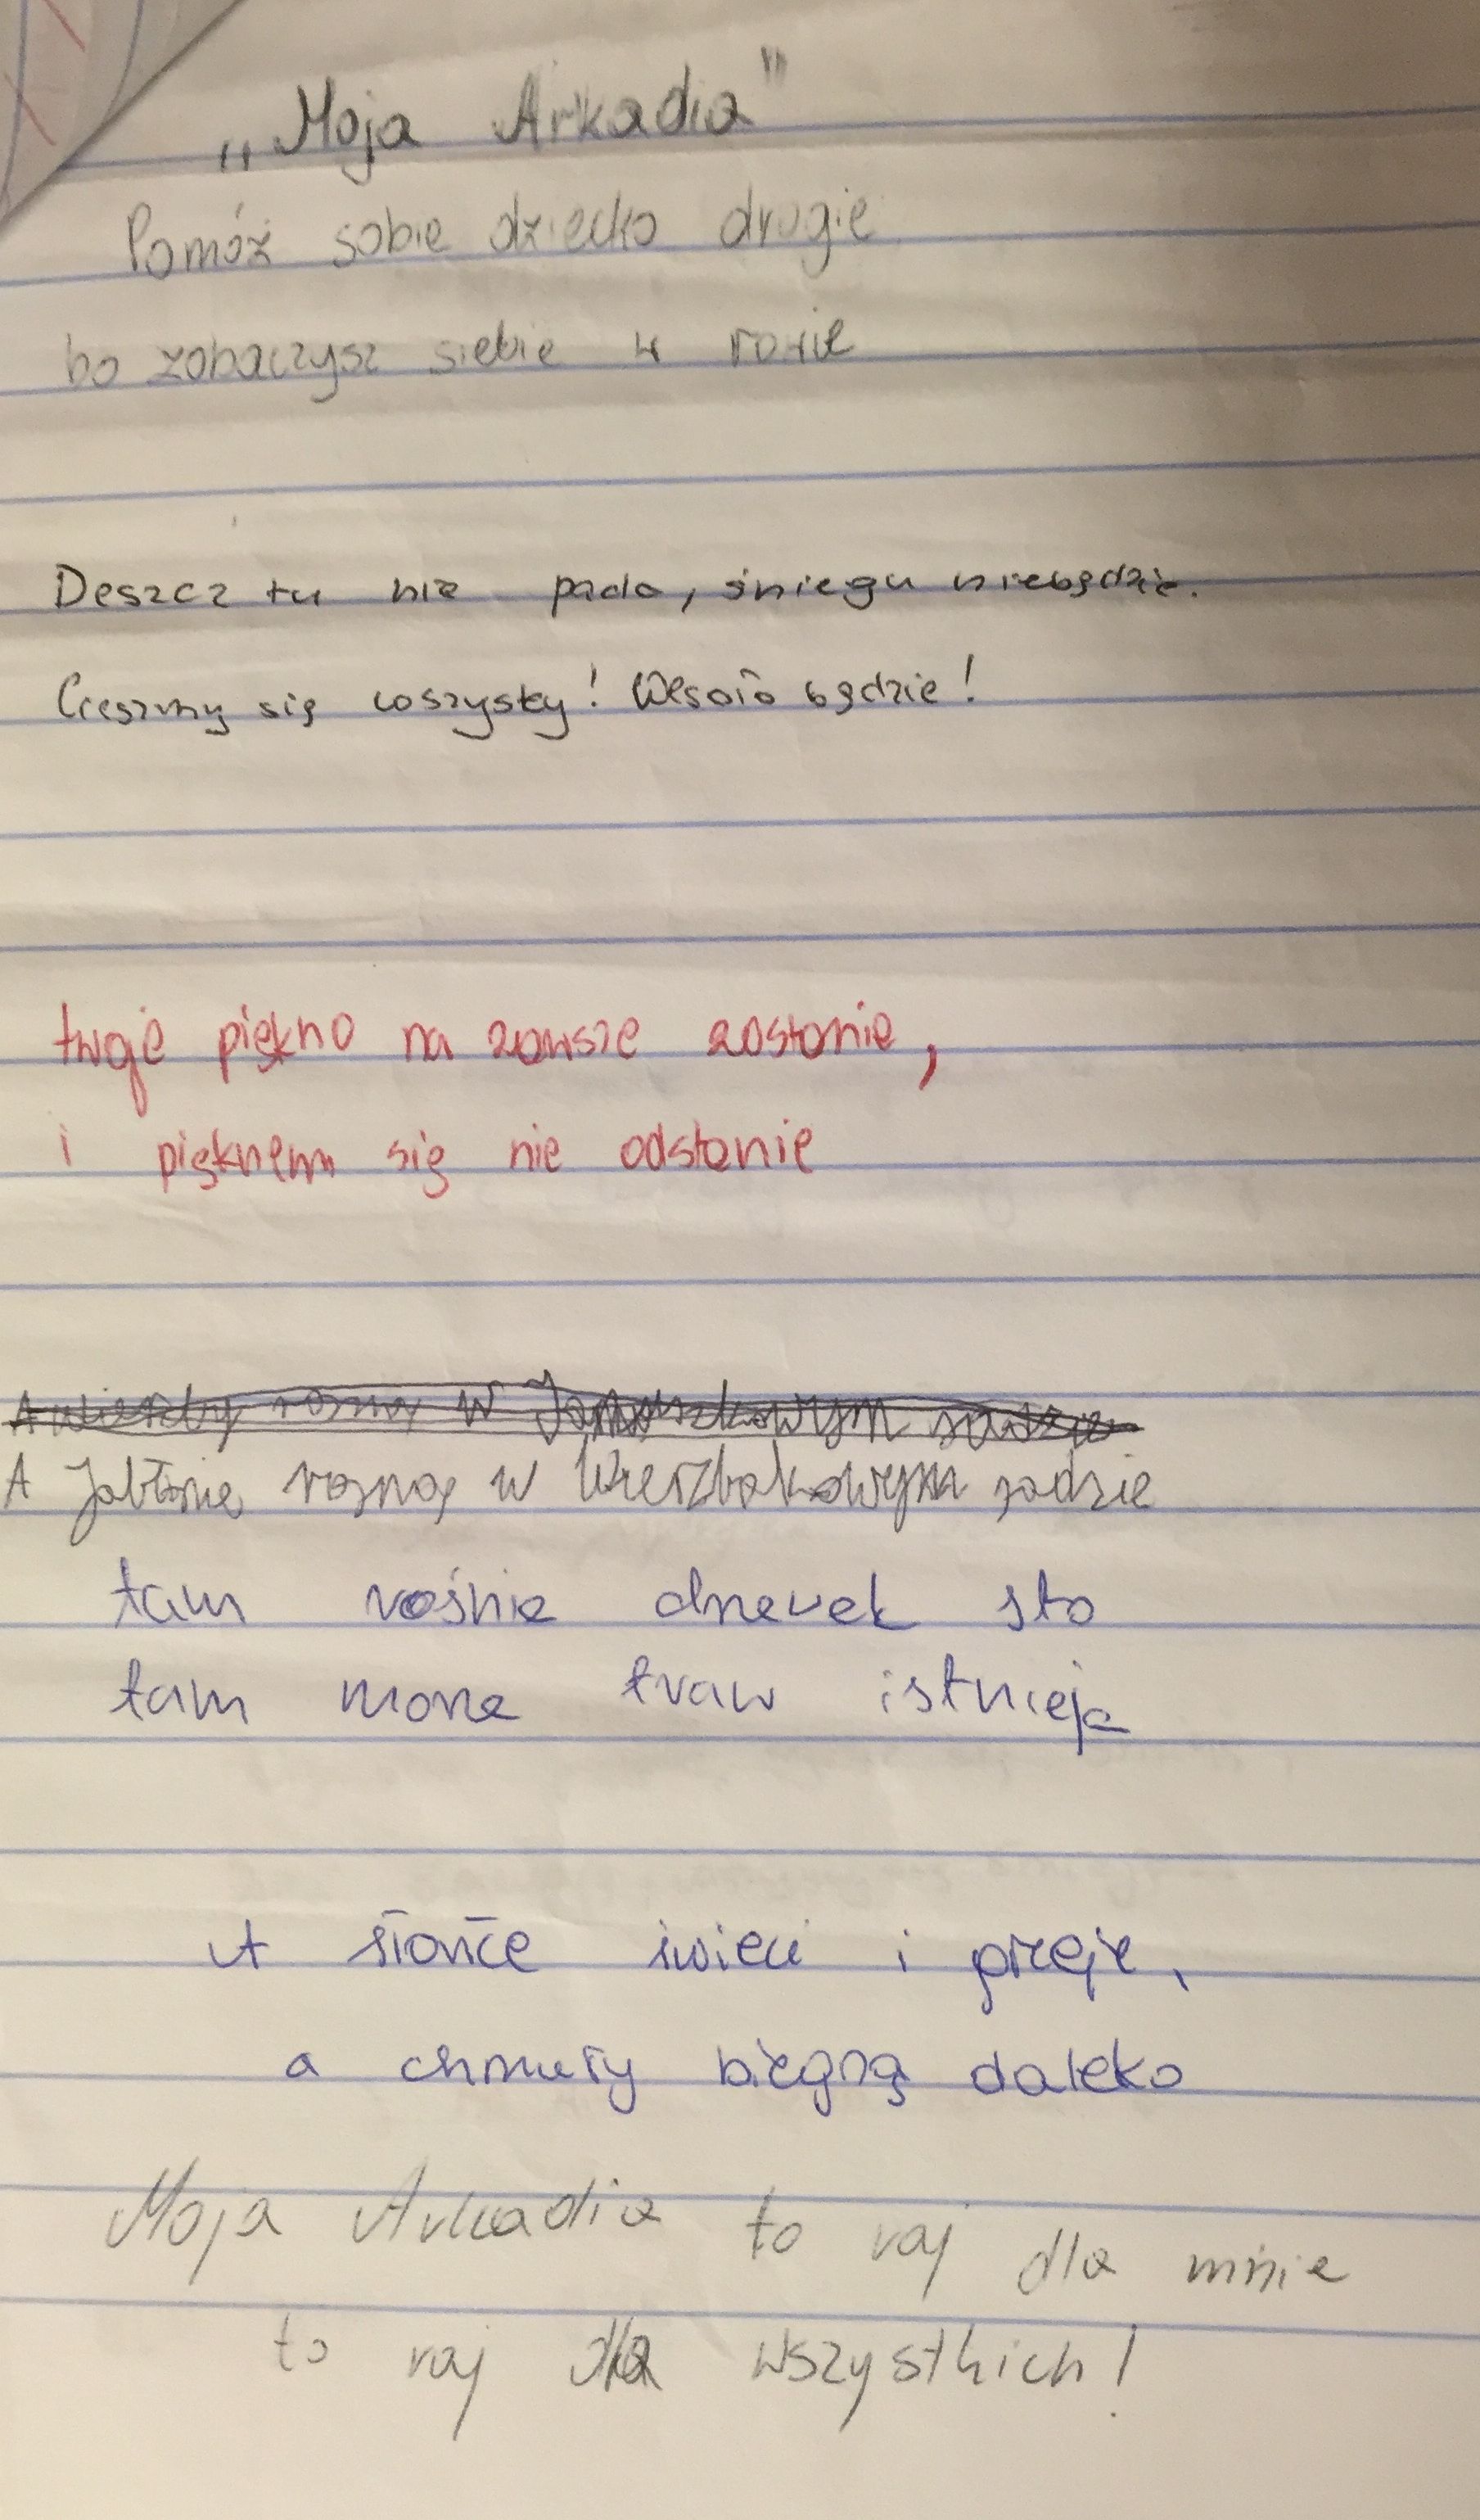 „Moja Arkadia"
Pomóż sobie dziecko drogie
bo zobaczysz siebie w rowie
Deszcz tu nie pada, śniegu niebędzie.
Cieszmy się wszyscy! Wesoło będzie!
twoje piękno na zawsze zostanie,
i pięknem się nie odstanie
A wierzby rosną w Jabłuszkowym sadzie
A Jabłonie rosną w Wierzbakowym sadzie
tam rośnie drzewek sto
tam morze traw istnieje
A słońce świeci i grzeje,
a chmury biegną daleko
Moja Arkadia to raj dla mnie
to raj dla wszystkich!